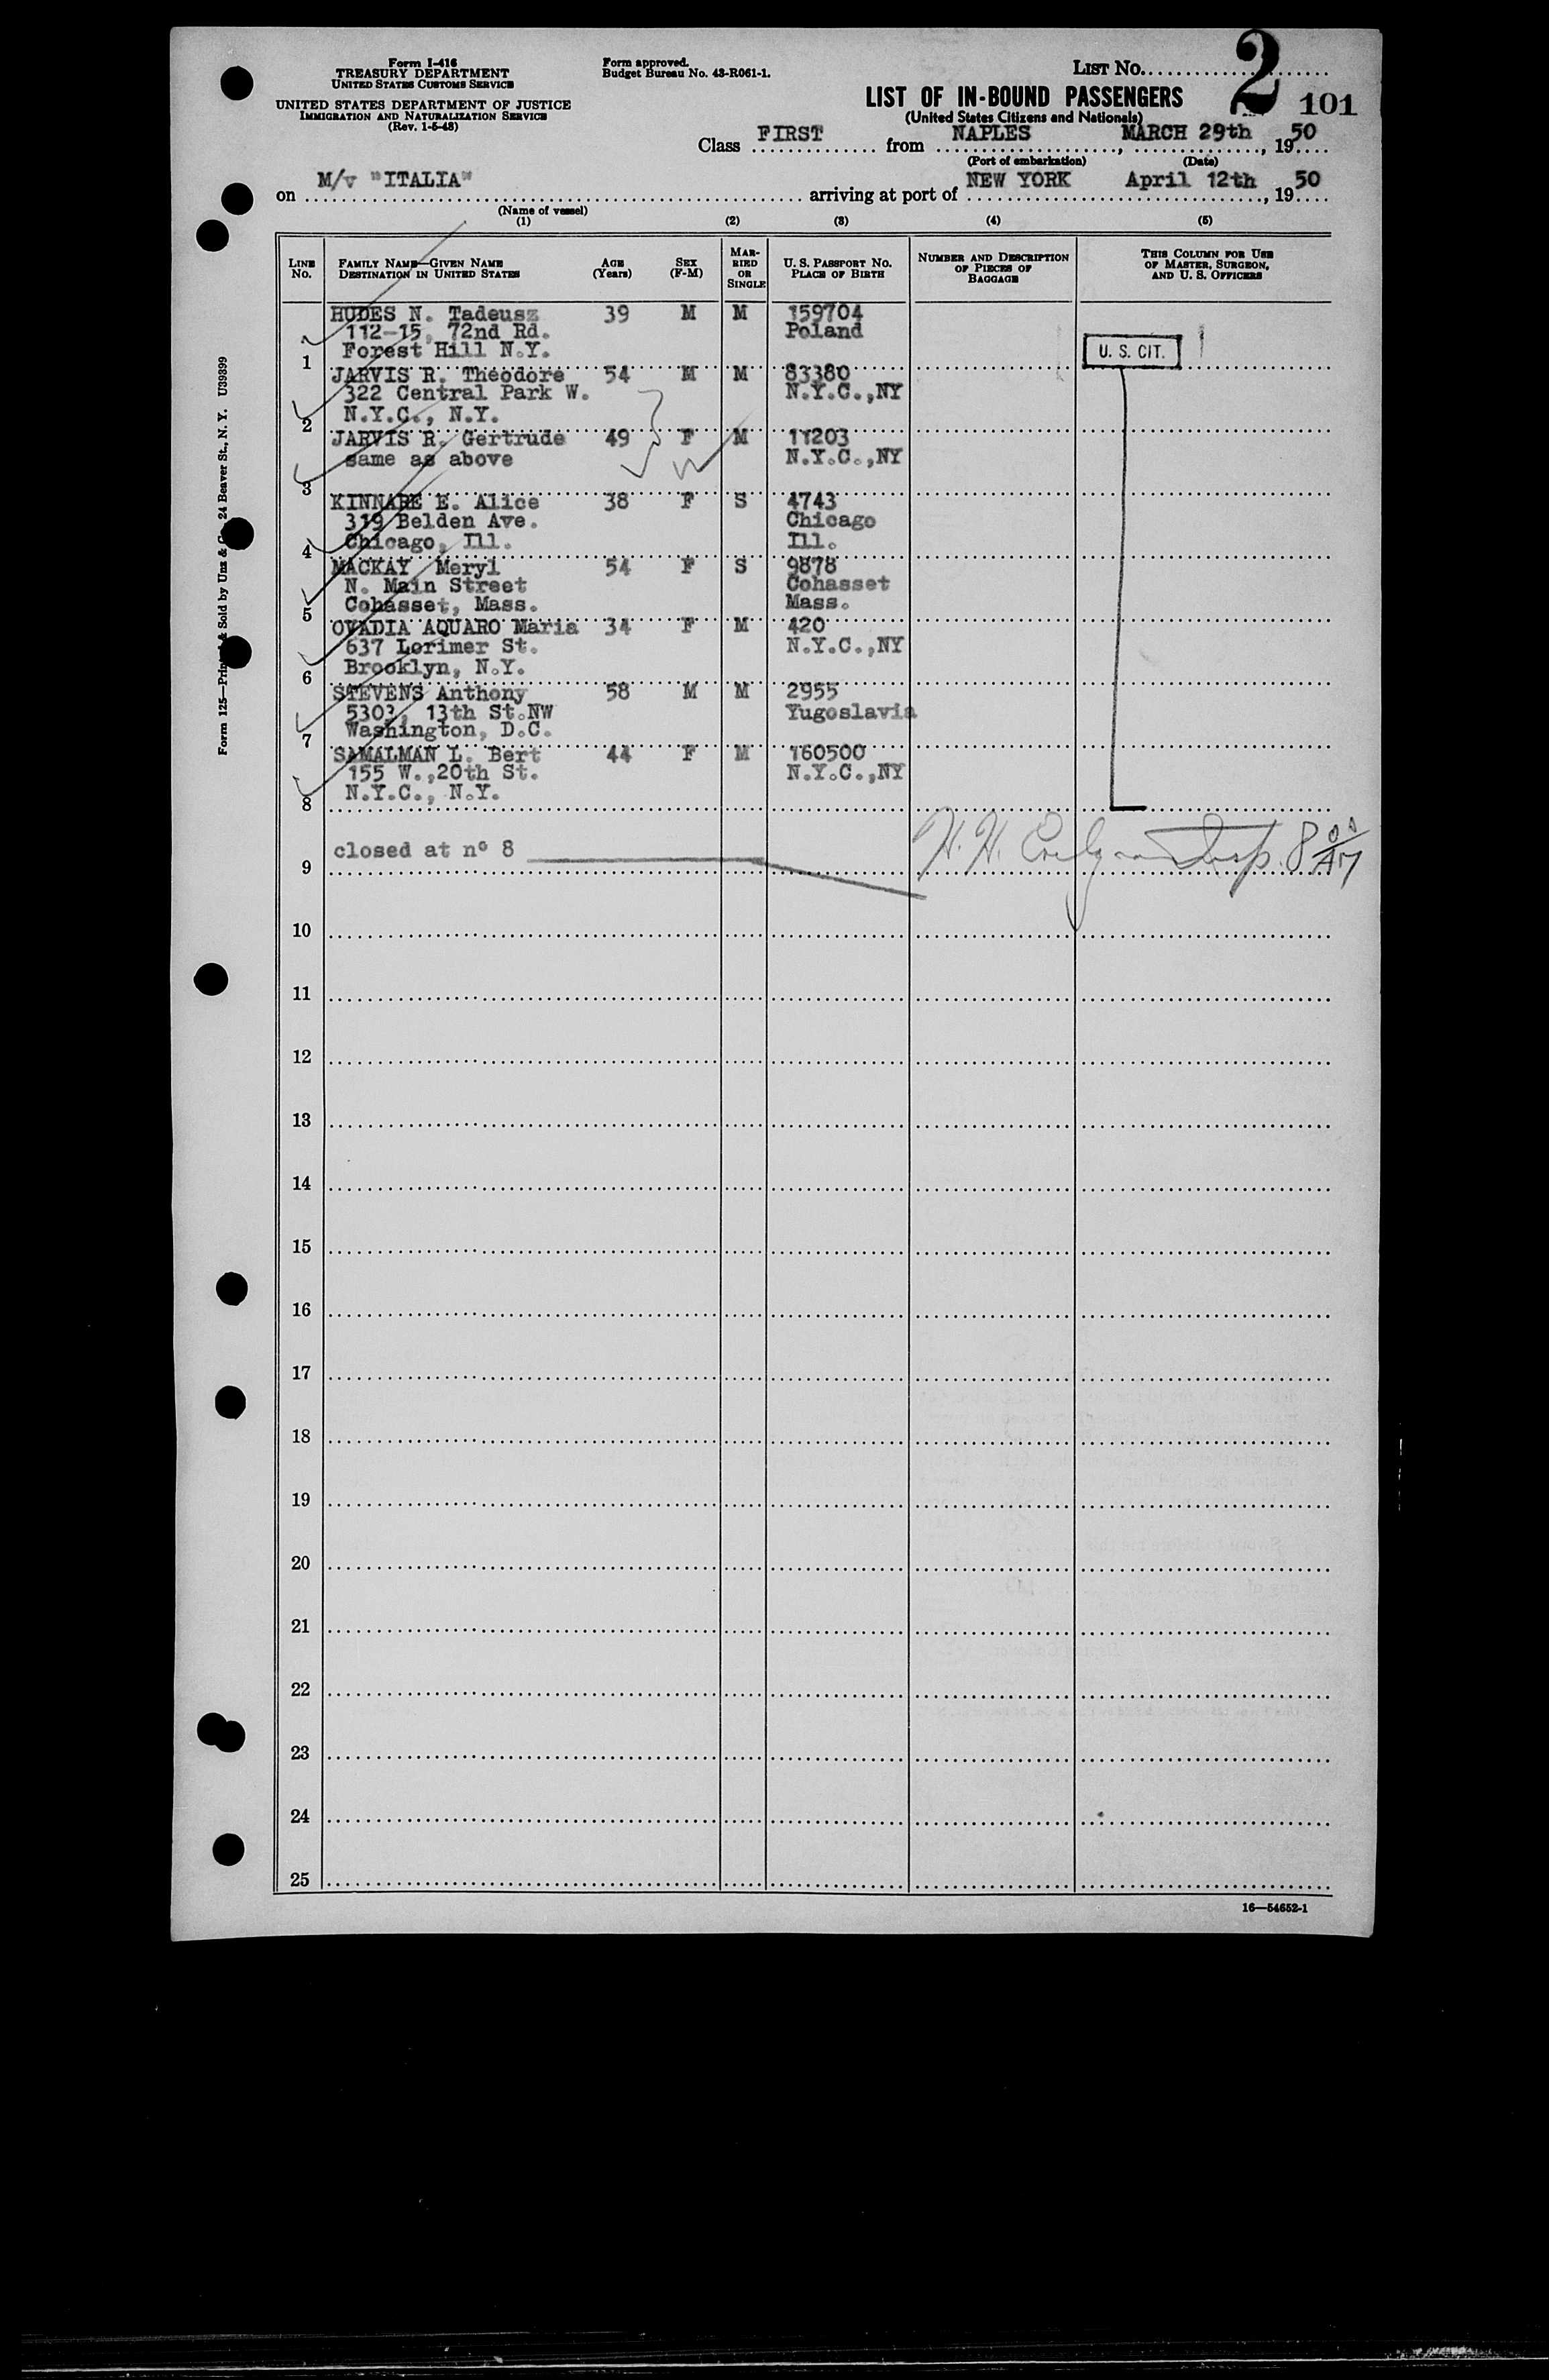 Form I-416
TREASURY DEPARTMENT
UNITED STATES CUSTOMS SERVICE
UNITED STATES DEPARTMENT OF JUSTICE
IMMIGRATION AND NATURALIZATION SERVICE
(Rev. 1-5-48)
Form approved.
Budget Bureau No. 43-R061-1.
LIST No. 2
101
LIST OF IN-BOUND PASSENGERS
(United States Citizens and Nationals)
Class FIRST from NAPLES, MARCH 29th, 1950
(Port of embarkation) (Date)
on M/v "ITALIA" arriving at port of NEW YORK April 12th, 1950
(Name of vessel)
(1) (2) (3) (4) (5)
LINE No. FAMILY NAME—GIVEN NAME DESTINATION IN UNITED STATES AGE (Years) SEX (F-M) MARRIED OR SINGLE U. S. PASSPORT No. PLACE OF BIRTH NUMBER AND DESCRIPTION OF PIECES OF BAGGAGE THIS COLUMN FOR USE OF MASTER, SURGEON, AND U. S. OFFICERS
HUDES N. Tadeusz 39 M M 159704
112-15, 72nd Rd. Poland
1 Forest Hill N.Y. U. S. CIT.
JARVIS R. Theodore 54 M M 83380
322 Central Park W. N.Y.C.,NY
2 N.Y.C., N.Y.
JARVIS R. Gertrude 49 F M 11203
same as above N.Y.C.,NY
3
KINNARE E. Alice 38 F S 4743
319 Belden Ave. Chicago
4 Chicago, Ill. Ill.
MACKAY Meryl 54 F S 9878
N. Main Street Cohasset
5 Cohasset, Mass. Mass.
OVADIA AQUARO Maria 34 F M 420
637 Lorimer St. N.Y.C.,NY
6 Brooklyn, N.Y.
STEVENS Anthony 58 M M 2955
5303, 13th St.NW Yugoslavia
7 Washington, D.C.
SAMALMAN L. Bert 44 F M 160500
155 W.,20th St. N.Y.C.,NY
8 N.Y.C., N.Y.
9 closed at nº 8 H. H. Insp. 8 00 AM
10
11
12
13
14
15
16
17
18
19
20
21
22
23
24
25
16—54652-1
Form 125—Printed & Sold by Unz & Co., 24 Beaver St., N. Y. U39399